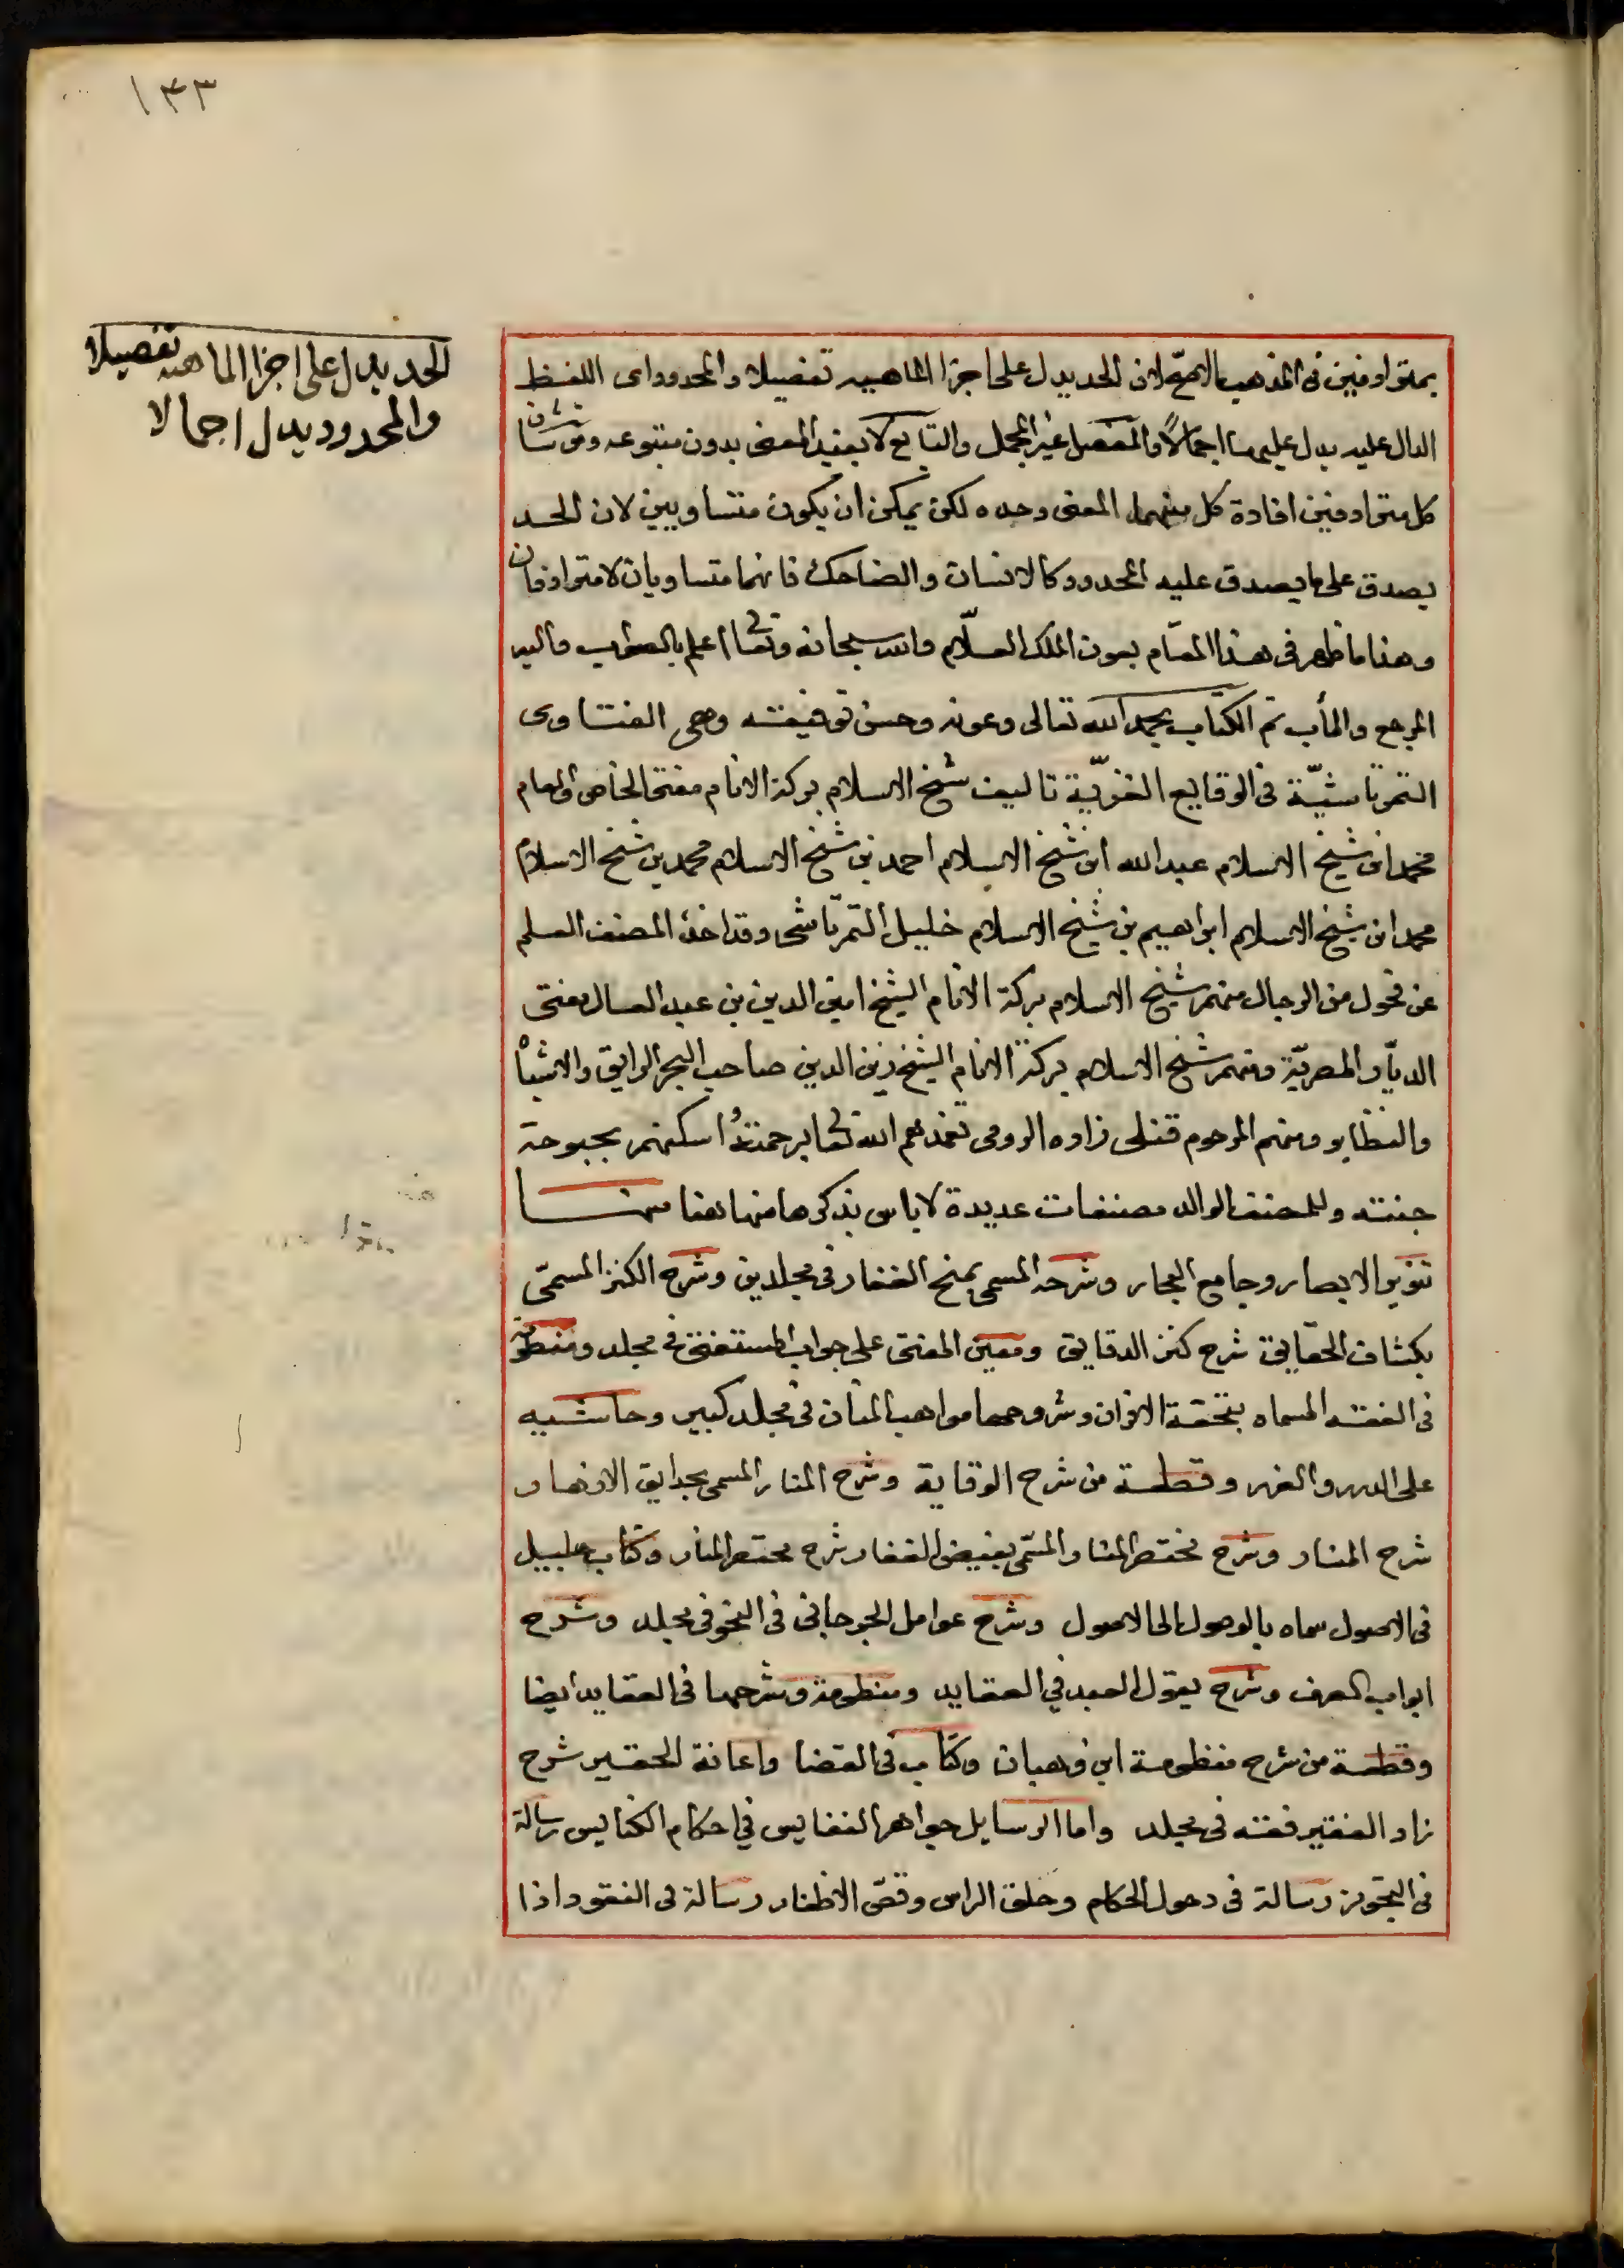 ١٤٣
الحد يدل على اجزا الماهيه تفصيلا
والمحدود يدل اجمالا
بمترادفين فى المذهب الاصح لان الحد يدل على اجزا الماهيه تفصيلا والمحدود اى اللفظ
الدال عليه يدل عليها اجمالاً والمفصل غير المجمل والتابع لا يفيد المعنى بدون متبوعه ومن شان
كل مترادفين افادة كل منهما المعنى وحده لكن يمكن ان يكون متساويين لان الحد
يصدق على ما يصدق عليه المحدود كالانسان والضاحك فانهما متساويان لا مترادفان
وهذا ما ظهر فى هذا المقام بعون الملك العلّام والله سبحانه وتعالى اعلم بالصواب واليه
المرجع والمأب تم الكتاب بحمد الله تعالى وعونه وحسن توفيقه وهى الفتاوى
التمرتاشيّة فى الوقايع الغزيّة تاليف شيخ الاسلام بركة الانام مفتى الخاص والعام
محمد ابن شيخ الاسلام عبد الله ابن شيخ الاسلام احمد بن شيخ الاسلام محمد بن شيخ الاسلام
محمد ابن شيخ الاسلام ابراهيم بن شيخ الاسلام خليل التمرتاشى وقد اخذ المصنف العلم
عن فحول من الرجال منهم شيخ الاسلام بركة الانام الشيخ امين الدين بن عبد العال مفتى
الديار المصريّة ومنهم شيخ الاسلام بركة الانام الشيخ زين الدين صاحب البحر الرايق والاشباه
والنظاير ومنهم المرحوم قنلى زاده الرومى تغمدهم الله تعالى برحمته واسكنهم بحبوحة
جنته وللمصنف الوالد مصنفات عديدة لا باس بذكرها منها هنا منها
تنوير الابصار وجامع البحار وشرحه المسمى بمنح الغفار فى مجلدين وشرح الكنز المسمّى
بكشاف الحقايق شرح كنز الدقايق ومعين المفتى على جواب المستفتى فى مجلد ومنظومة
فى الفقه المسماه بتحفة الاقران وشروحها مواهب المنان فى مجلد كبير وحاشيه
على الدرر والغرر وقطعة من شرح الوقاية وشرح المنار المسمى بحدايق الازهار
شرح المنار وشرح مختصر المنار المسمّى بفيض الغفار شرح مختصر المنار وكتاب جليل
فى الاصول سماه بالوصول الى الاصول وشرح عوامل الجرجانى فى النحو فى مجلد وشرح
ابواب الصرف وشرح يقول العبد في العقايد ومنظومة وشرحها فى العقايد ايضا
وقطعة من شرح منظومة ابن وهبان وكتاب فى القضا واعانة الحقير شرح
زاد الفقير فقه فى مجلد واما الرسايل جواهر النفايس في احكام الكنايس رسالة
فى التجويز رسالة فى دخول الحمام وحلق الراس وقصّ الاظفار رسالة فى النقود اذا